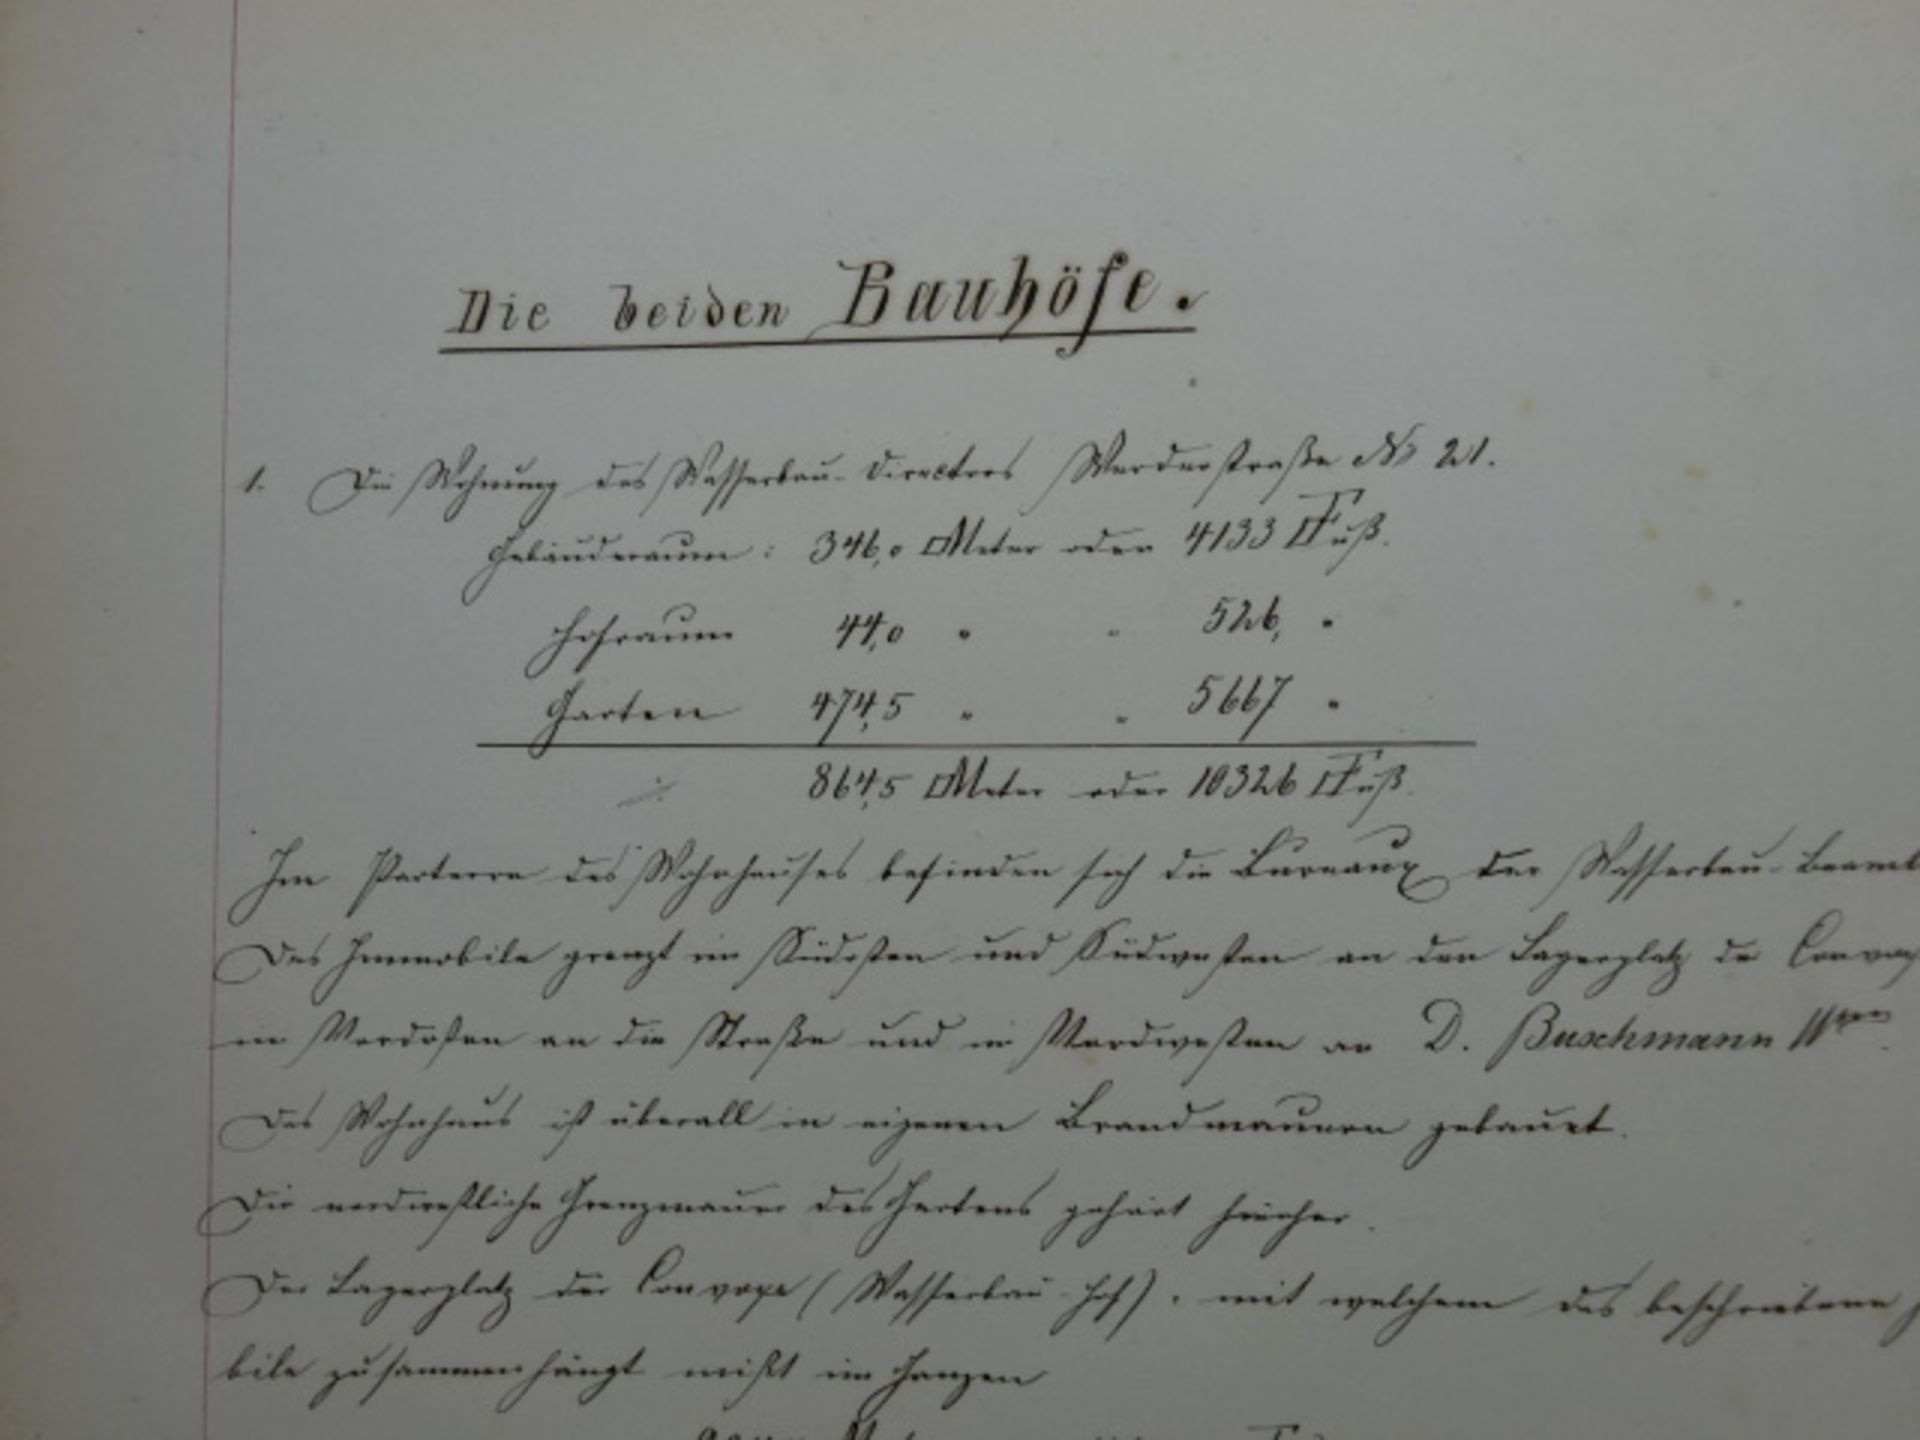 Die beiden Bauhöfe.
1. Die Wohnung des Wasserbau-Directors Werderstraße No 21.
Gebäuderaum: 346,0 □Meter oder 4133 □Fuß.
Hofraum 44,0 " " 526, "
Garten 474,5 " " 5667 "
864,5 □Meter oder 10326 □Fuß.
Im Parterre des Wohnhauses befinden sich die Bureaux der Wasserbau-Beamt
Das Immobile grenzt im Südosten und Südwesten an den Lagerplatz der
im Nordosten an die Straße und im Nordwesten an D. Buschmann Wwe
Das Wohnhaus ist überall in eigenen Brandmauern gebauet.
Die nordwestliche Grenzmauer des Gartens gehört hierher.
Der Lagerplatz der Convoye (Wasserbau-Hof), mit welchem das beschriebene
bile zusammenhängt mißt im Ganzen